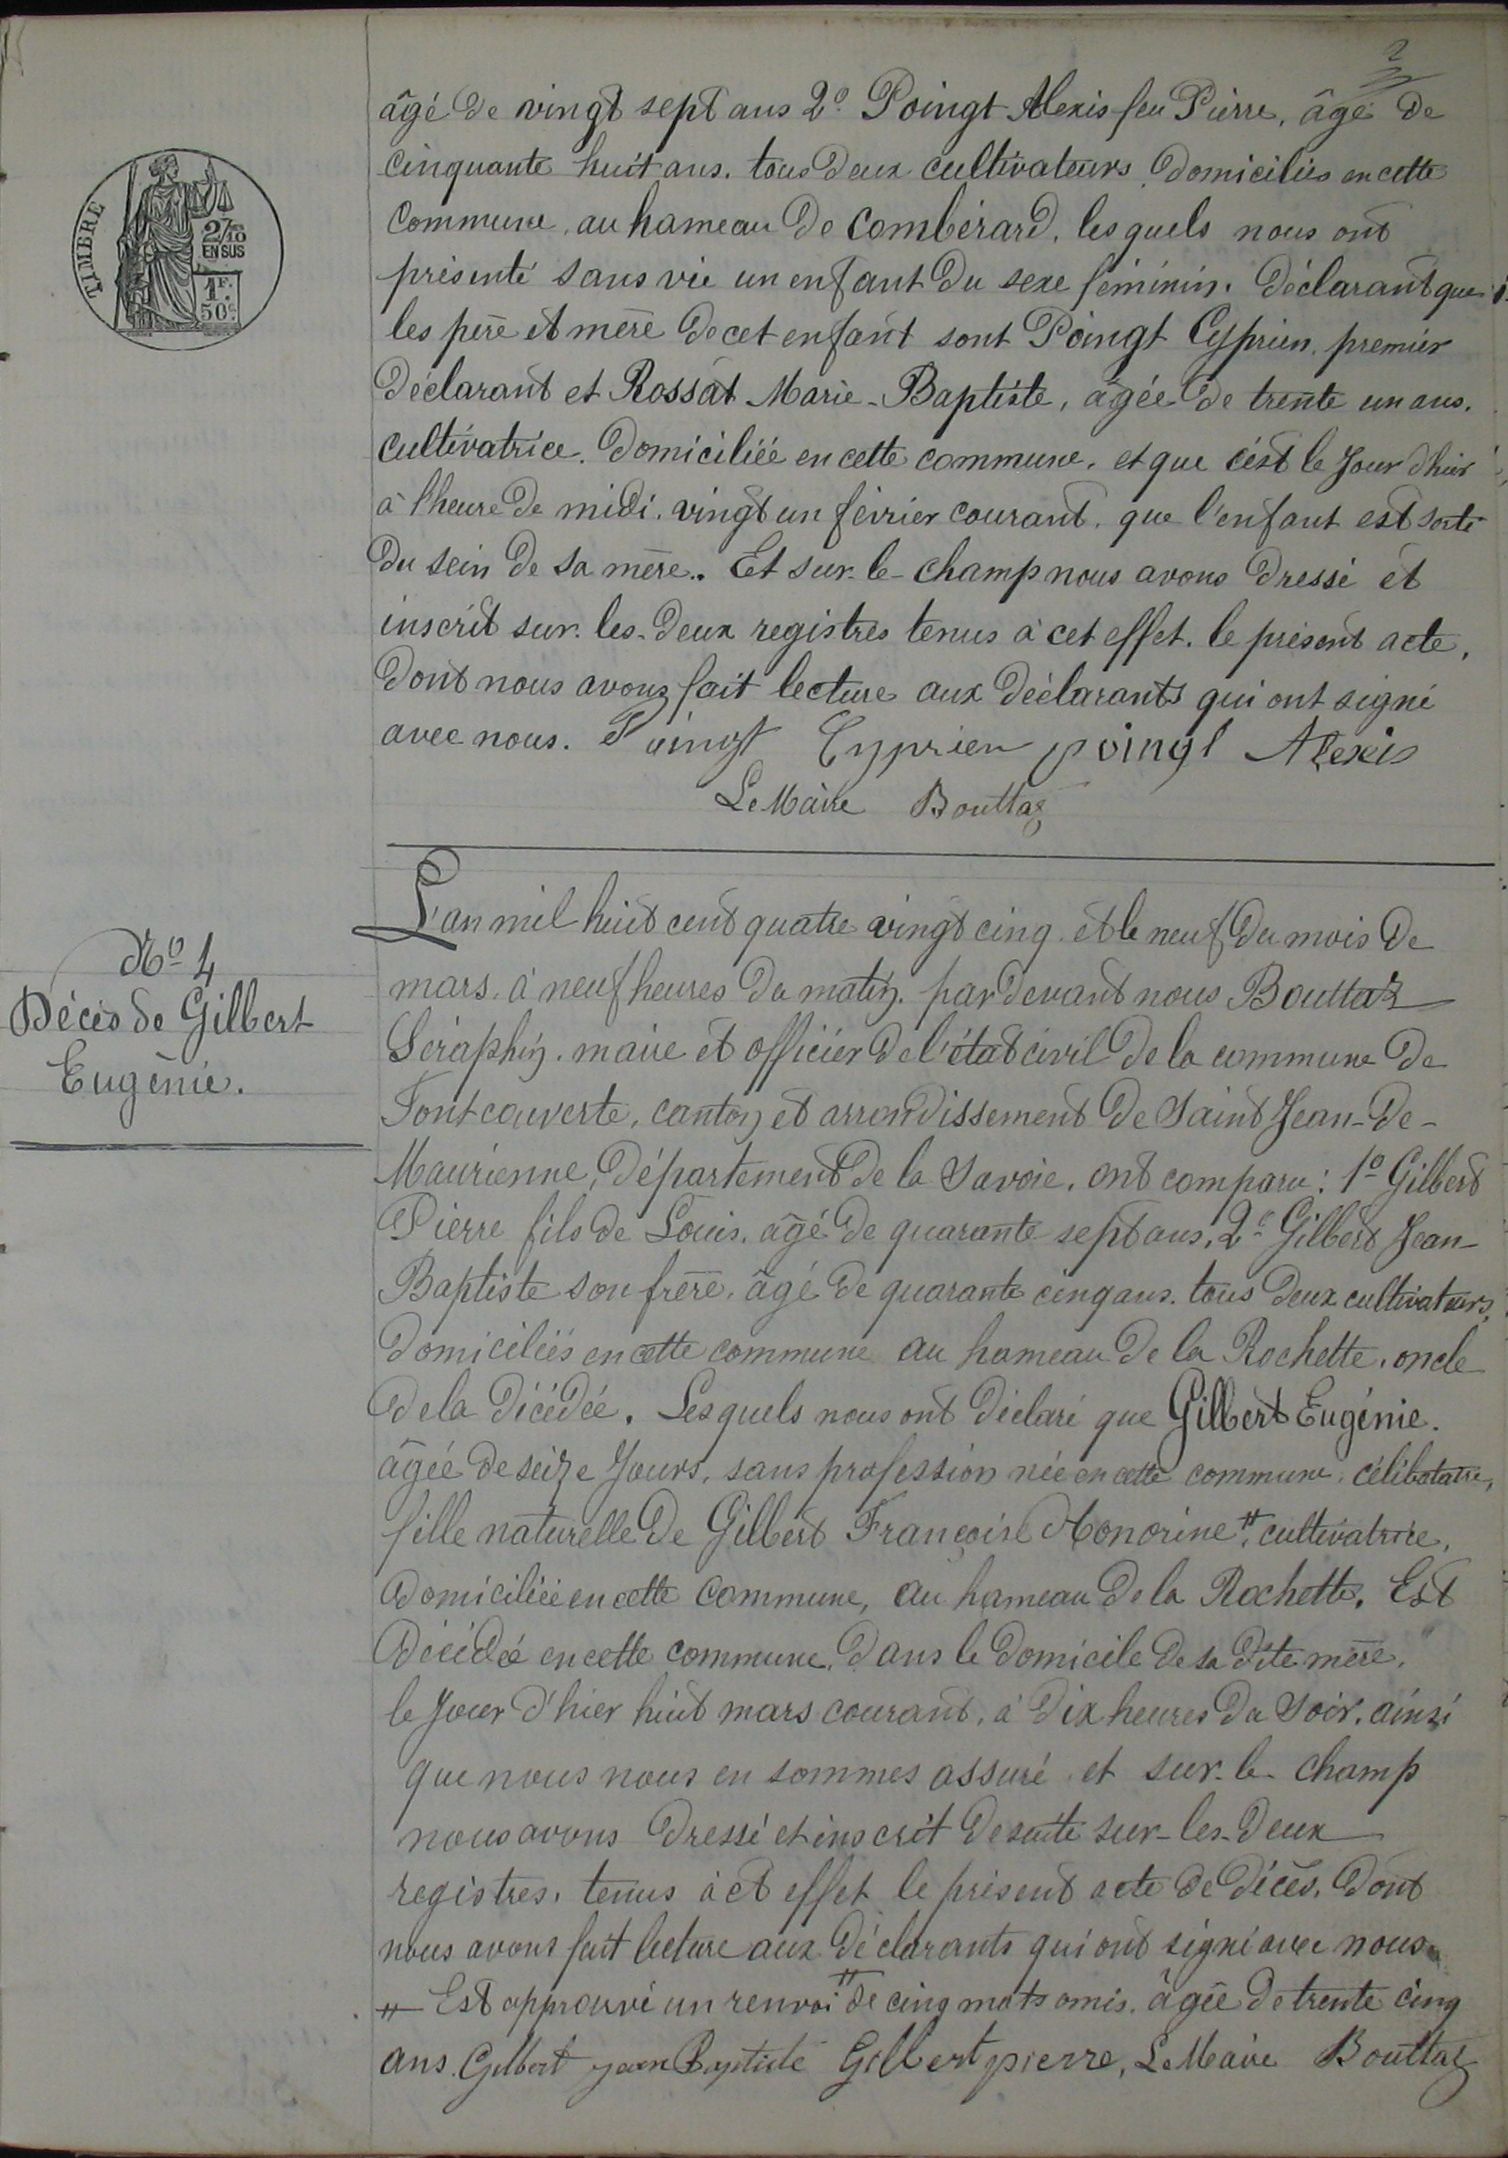 2
âgé de vingt sept ans 2º Poingt Alexis feu Pierre, âgé de
cinquante huit ans. tous deux cultivateurs, domiciliés en cette
commune, au hameau de Combérard, lesquels nous ont
présenté sans vie un enfant du sexe féminin. déclarant que
les père et mère de cet enfant sont Poingt Cyprien, premier
déclarant et Rossat Marie-Baptiste, âgée de trente un ans.
cultivatrice. domiciliée en cette commune, et que c'est le Jour d'hier
à l'heure de midi. vingt un février courant, que l'enfant est sorti
du sein de sa mère.. Et sur-le-champ nous avons dressé et
inscrit sur-les-deux registres tenus à cet effet. le présent acte,
dont nous avons fait lecture aux déclarants qui ont signé
avec nous. Poingt Cyprien poingt Alexis
Le Maire Bouttaz
TIMBRE
2/10
EN SUS
1F.
50c.
Nº 4
Décès de Gilbert
Eugènie.
L'an mil huit cent quatre vingt cinq et le neuf du mois de
mars, à neuf heures du matin. par devant nous Bouttaz
Séraphin, maire et officier de l'état civil de la commune de
Fontcouverte, canton et arrondissement de Saint Jean-de-
Maurienne, département de la Savoie, ont comparu : 1º Gilbert
Pierre fils de Louis. âgé de quarante sept ans, 2º Gilbert Jean-
Baptiste son frère, âgé de quarante cinq ans. tous deux cultivateurs,
domiciliés en cette commune au hameau de la Rochette, oncle
de la décédée. Lesquels nous ont déclaré que Gilbert Eugénie.
âgée de seize Jours, sans profession née en cette commune, célibataire,
fille naturelle de Gilbert Françoise Honorine #, cultivatrice,
domiciliée en cette commune, au hameau de la Rochette. Est
décédée en cette commune, dans le domicile de sa dite mère,
le Jour d'hier huit mars courant, à dix heures du soir. ainsi
que nous nous en sommes assuré et sur-le-champ
nous avons dressé et inscrit de suite sur-les-deux
registres, tenus à cet effet le présent acte de décès. Dont
nous avons fait lecture aux déclarants qui ont signé avec nous
# Est approuvé un renvoi # de cinq mots omis. âgée de trente cinq
ans. Gilbert jean Baptiste Gilbert pierre, Le Maire Bouttaz